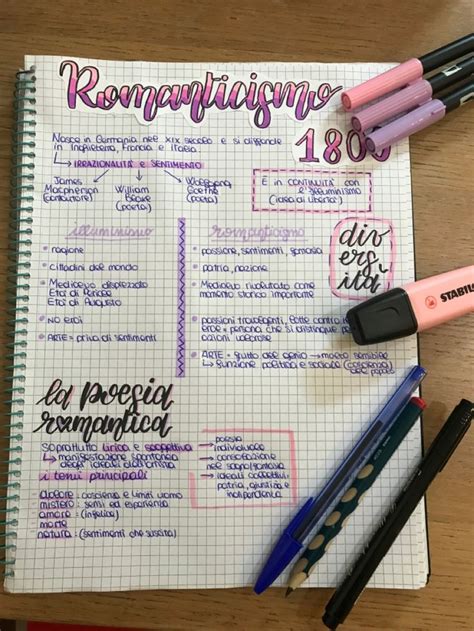 Romanticismo
1800
Nasce in Germania nel XIX secolo e si diffonde
in Inghilterra, Francia e Italia.
↳ IRRAZIONALITÀ E SENTIMENTO
James
Macpherson
William
Blake
(poeta)
Wolfgang
Goethe
(poeta)
È in CONTINUITÀ con
l'illuminismo
(idea di libertà)
illuminismo
• ragione
• cittadini del mondo
• Medioevo disprezzato
Età di Pericle
Età di Augusto
• NO EROI
• ARTE = priva di sentimenti
romanticismo
• passione, sentimenti, fantasia
• patria, nazione
• Medioevo rivalutato come
momento storico importante
• passioni travolgenti, lotte contro
eroe = persona che si distingue per
azioni valorose
• ARTE = frutto del genio → molto sensibile
↳ funzione politica e sociale (coscienza
del popolo)
diversità
STABILO
la poesia
romantica
soprattutto lirica e soggettiva
↳ manifestazione spontanea
degli ideali dell'anima
→ poesia
individuale
→ consolazione
nel soprannaturale
→ ideali collettivi
patria, giustizia e
indipendenza
i temi principali
dolore: coscienza e limiti uomo
mistero: sensi ed esperienza
amore: (infelice)
morte
natura: (sentimenti che suscita)